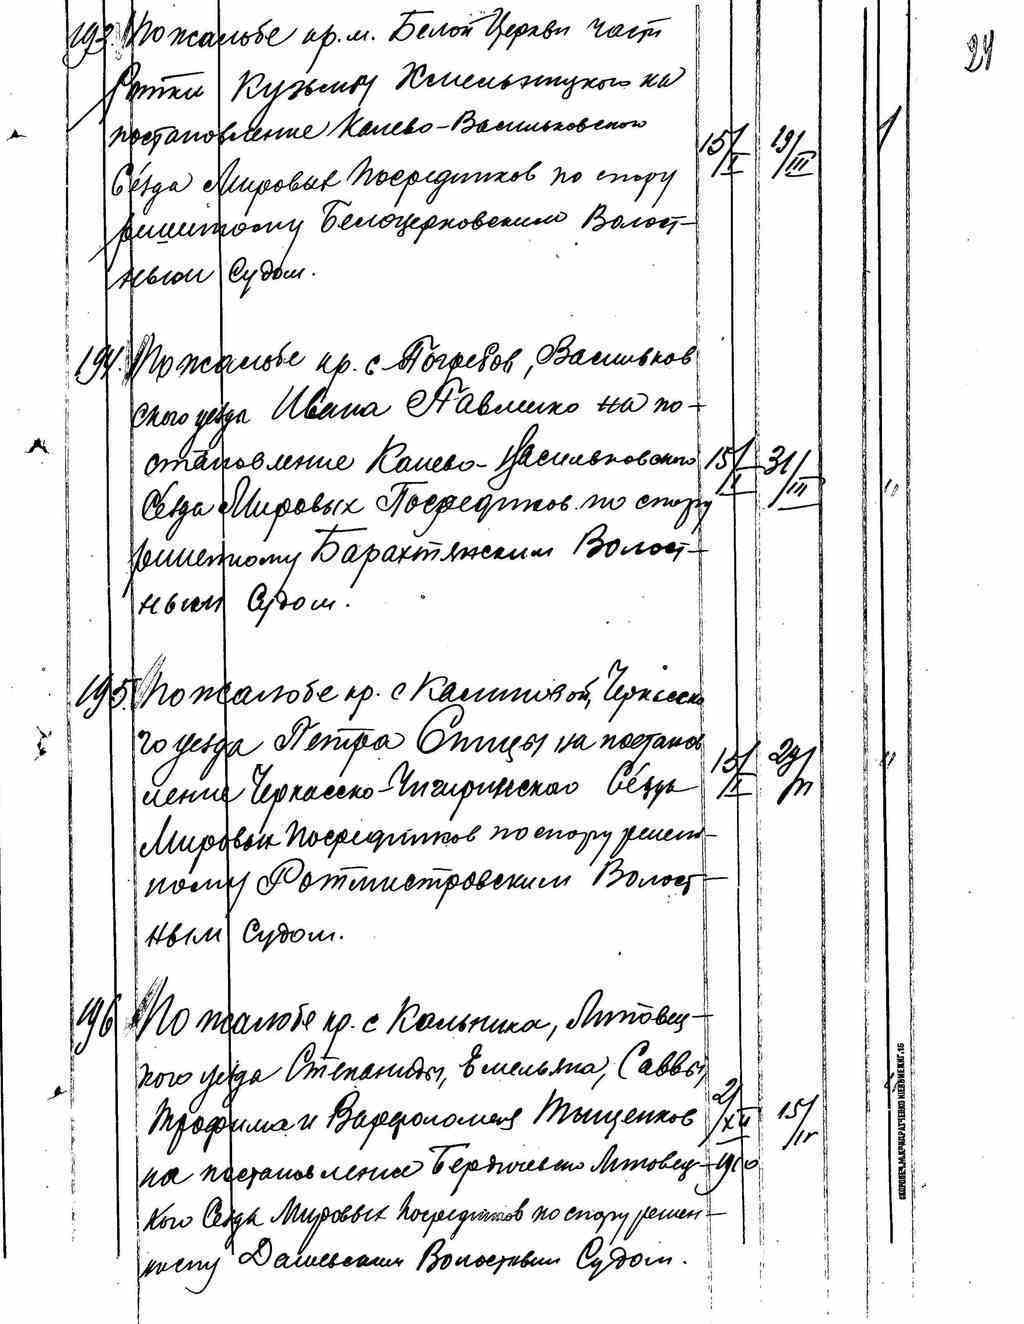 24
193. По жалобе кр. м. Белой Церкви части
Ротки Кузьмы Хмельницкого на
постановление Каневo-Васильковского
Съезда Мировых Посредников по спору
решенному Белоцерковским Волост-
ным Судом.
15/I 19/III 1
194. По жалобе кр. с Погребов, Васильков
ского уезда Ивана Павленко на по-
становление Канево-Васильковского
Съезда Мировых Посредников по спору
решенному Барахтянским Волост-
ным Судом.
15/I 31/III "
195. По жалобе кр. с Калиновой, Черкасско
го уезда Петра Спицы на постанов
ление Черкасско-Чигиринского Съезда
Мировых Посредников по спору решен-
ному Ротмистровским Волост-
ным Судом.
15/I 29/III "
196 По жалобе кр. с Кальника, Липовец-
кого уезда Степаниды, Емельяна, Саввы,
Трофима и Варфоломея Тыщенков
на постановление Бердичевско Липовец-
кого Съезда Мировых Посредников по спору решен-
ному Дашевским Волостным Судом.
2/XII 1910 15/IV "